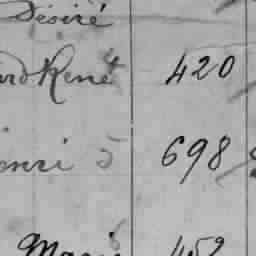 Désiré
René 420
enri 698
Marie 452